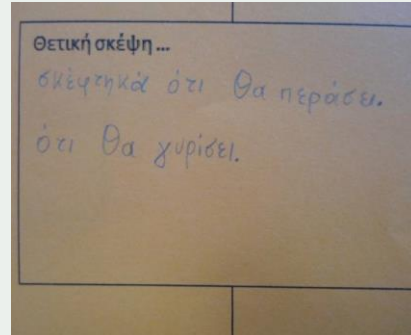 Θετική σκέψη...
σκέφτηκά ότι θα περάσει.
ότι θα γυρίσει.